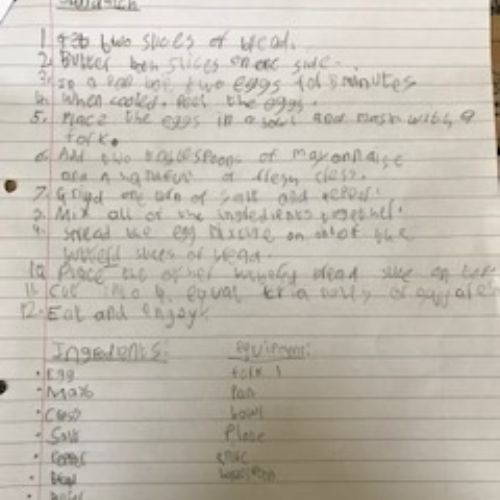 Sandwich
1. two slices of bread.
2. Butter both slices on one side.
3. In a pan boil two eggs for 8 minutes
4. When cooked, Peel the eggs.
5. Place the eggs in a bowl and mash with a
fork.
6. Add two tablespoons of mayonnaise
and a handful of cress.
7. Grind one turn of salt and pepper.
8. Mix all of the ingredients together.
9. Spread the egg mixture on one of the
buttered slices of bread.
10. Place the other buttered bread slice on
11. Cut into 4 equal
12. Eat and enjoy.
Ingredients: Equipment:
• Egg fork
• Mayo Pan
• Cress bowl
• Salt Plate
• Pepper
• Bread